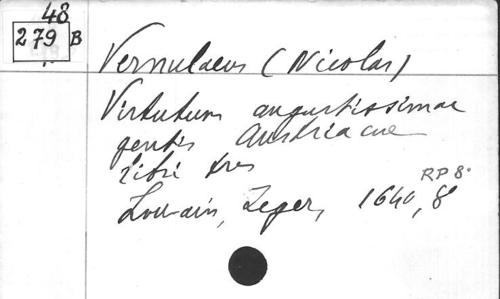 48
279 B
Vernulaeus (Nicolas)
Virtutum augustissimae
gentis Austriacae
libri tres
RP 8°
Louvain, Zeger, 1640, 8